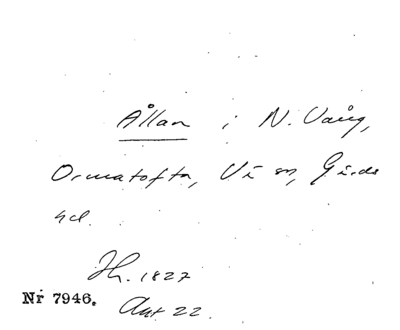 Ållan i N. Vång,
Ormatofta, Vi sn, Gärds
hd.
Jh. 1827
Nr 7946. Akt 22.